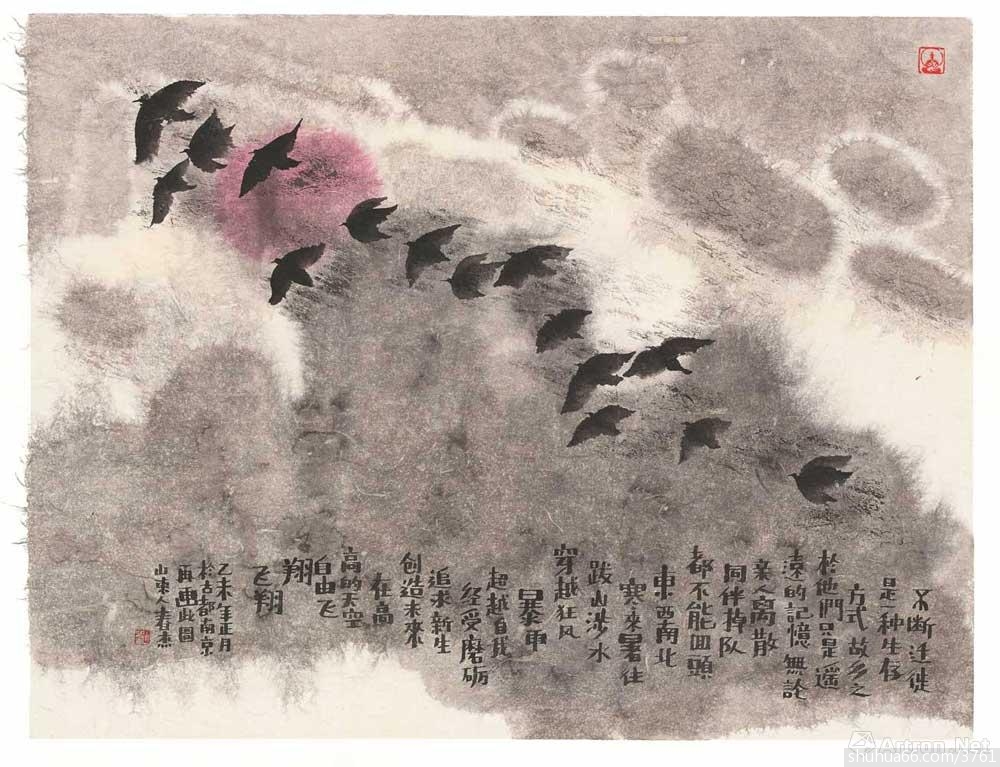 不断迁徙
是一种生存
方式 故乡之
於他們只是遥
遠的記憶 無論
亲人离散
同伴掉队
都不能回頭
東西南北
寒來暑往
跋山涉水
穿越狂风
暴雨
超越自我
经受磨砺
追求新生
创造未來
在高
高的天空
自由飞
翔
飞翔
乙未年正月
於古都南京
再画此圖
山東人春杰
Artron.Net
shuhua66.com/3761